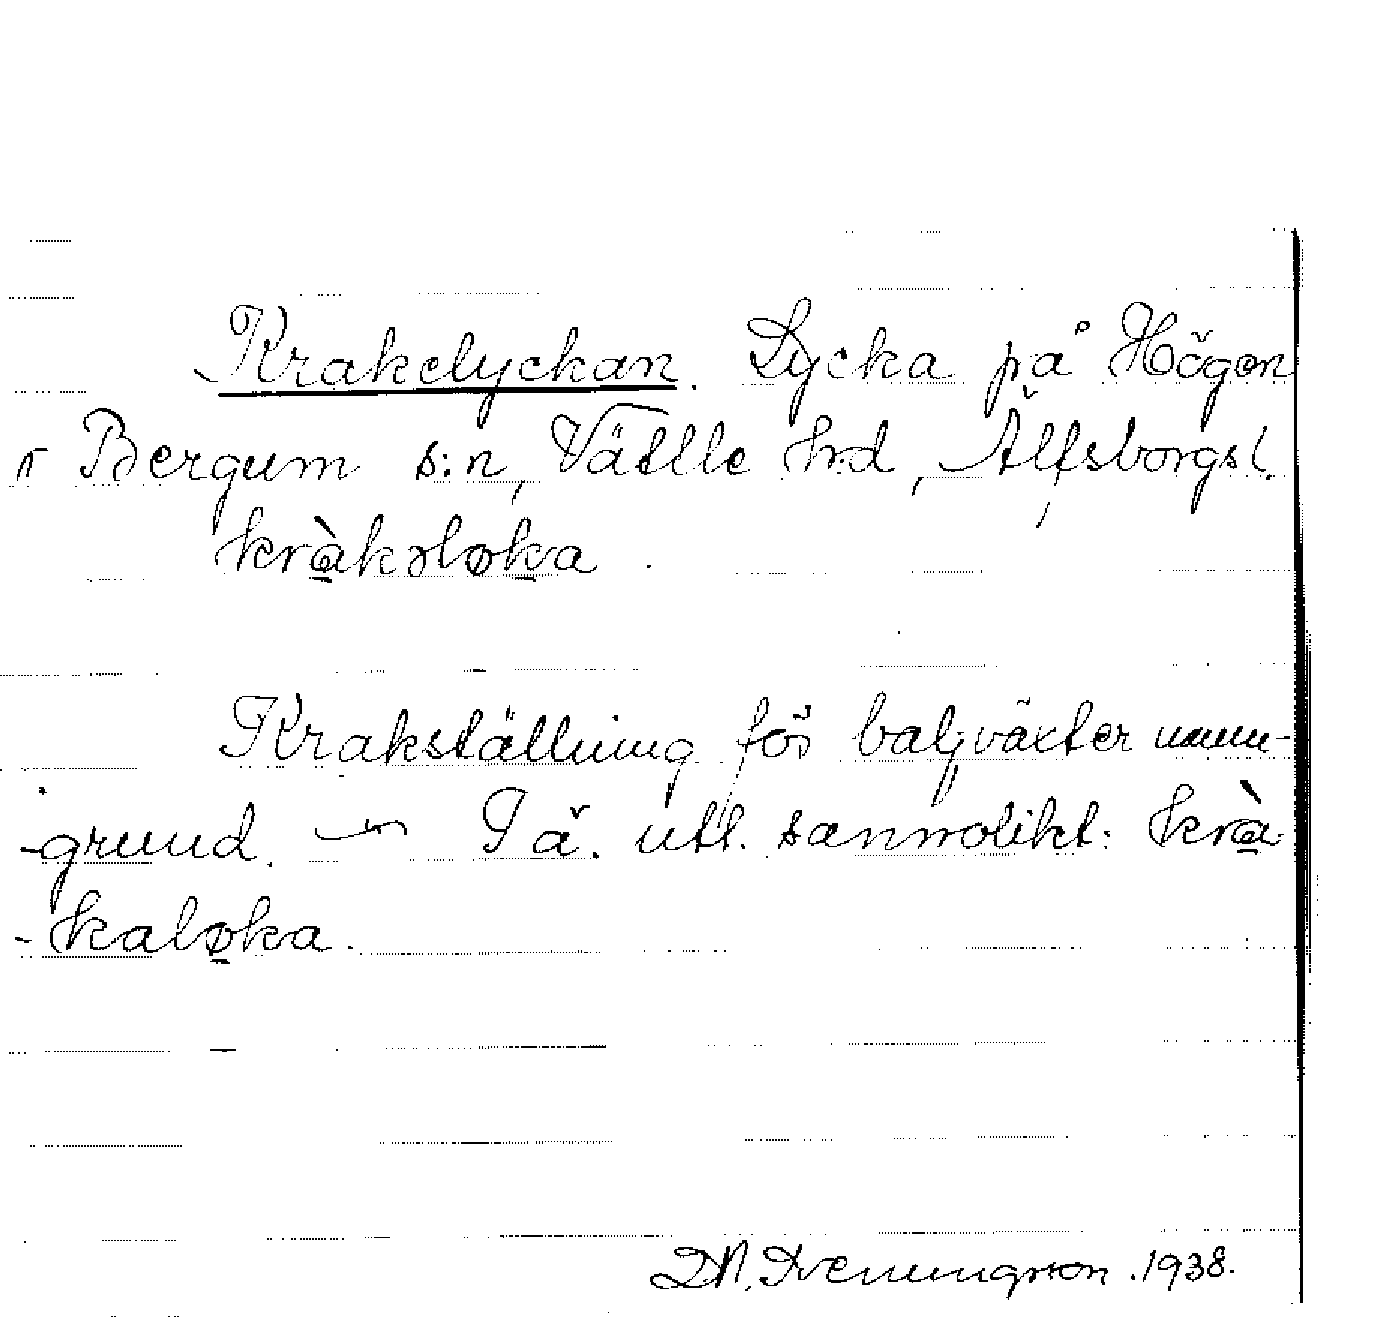 Krakelyckan. Lycka på Högen
i Bergum s:n, Vättle hrd, Älfsborgs l.
kràkəløka.
Krakställning för baljväxter namn-
-grund. — Tä. utt. sannolikt: krà-
-kaløka.
1938.